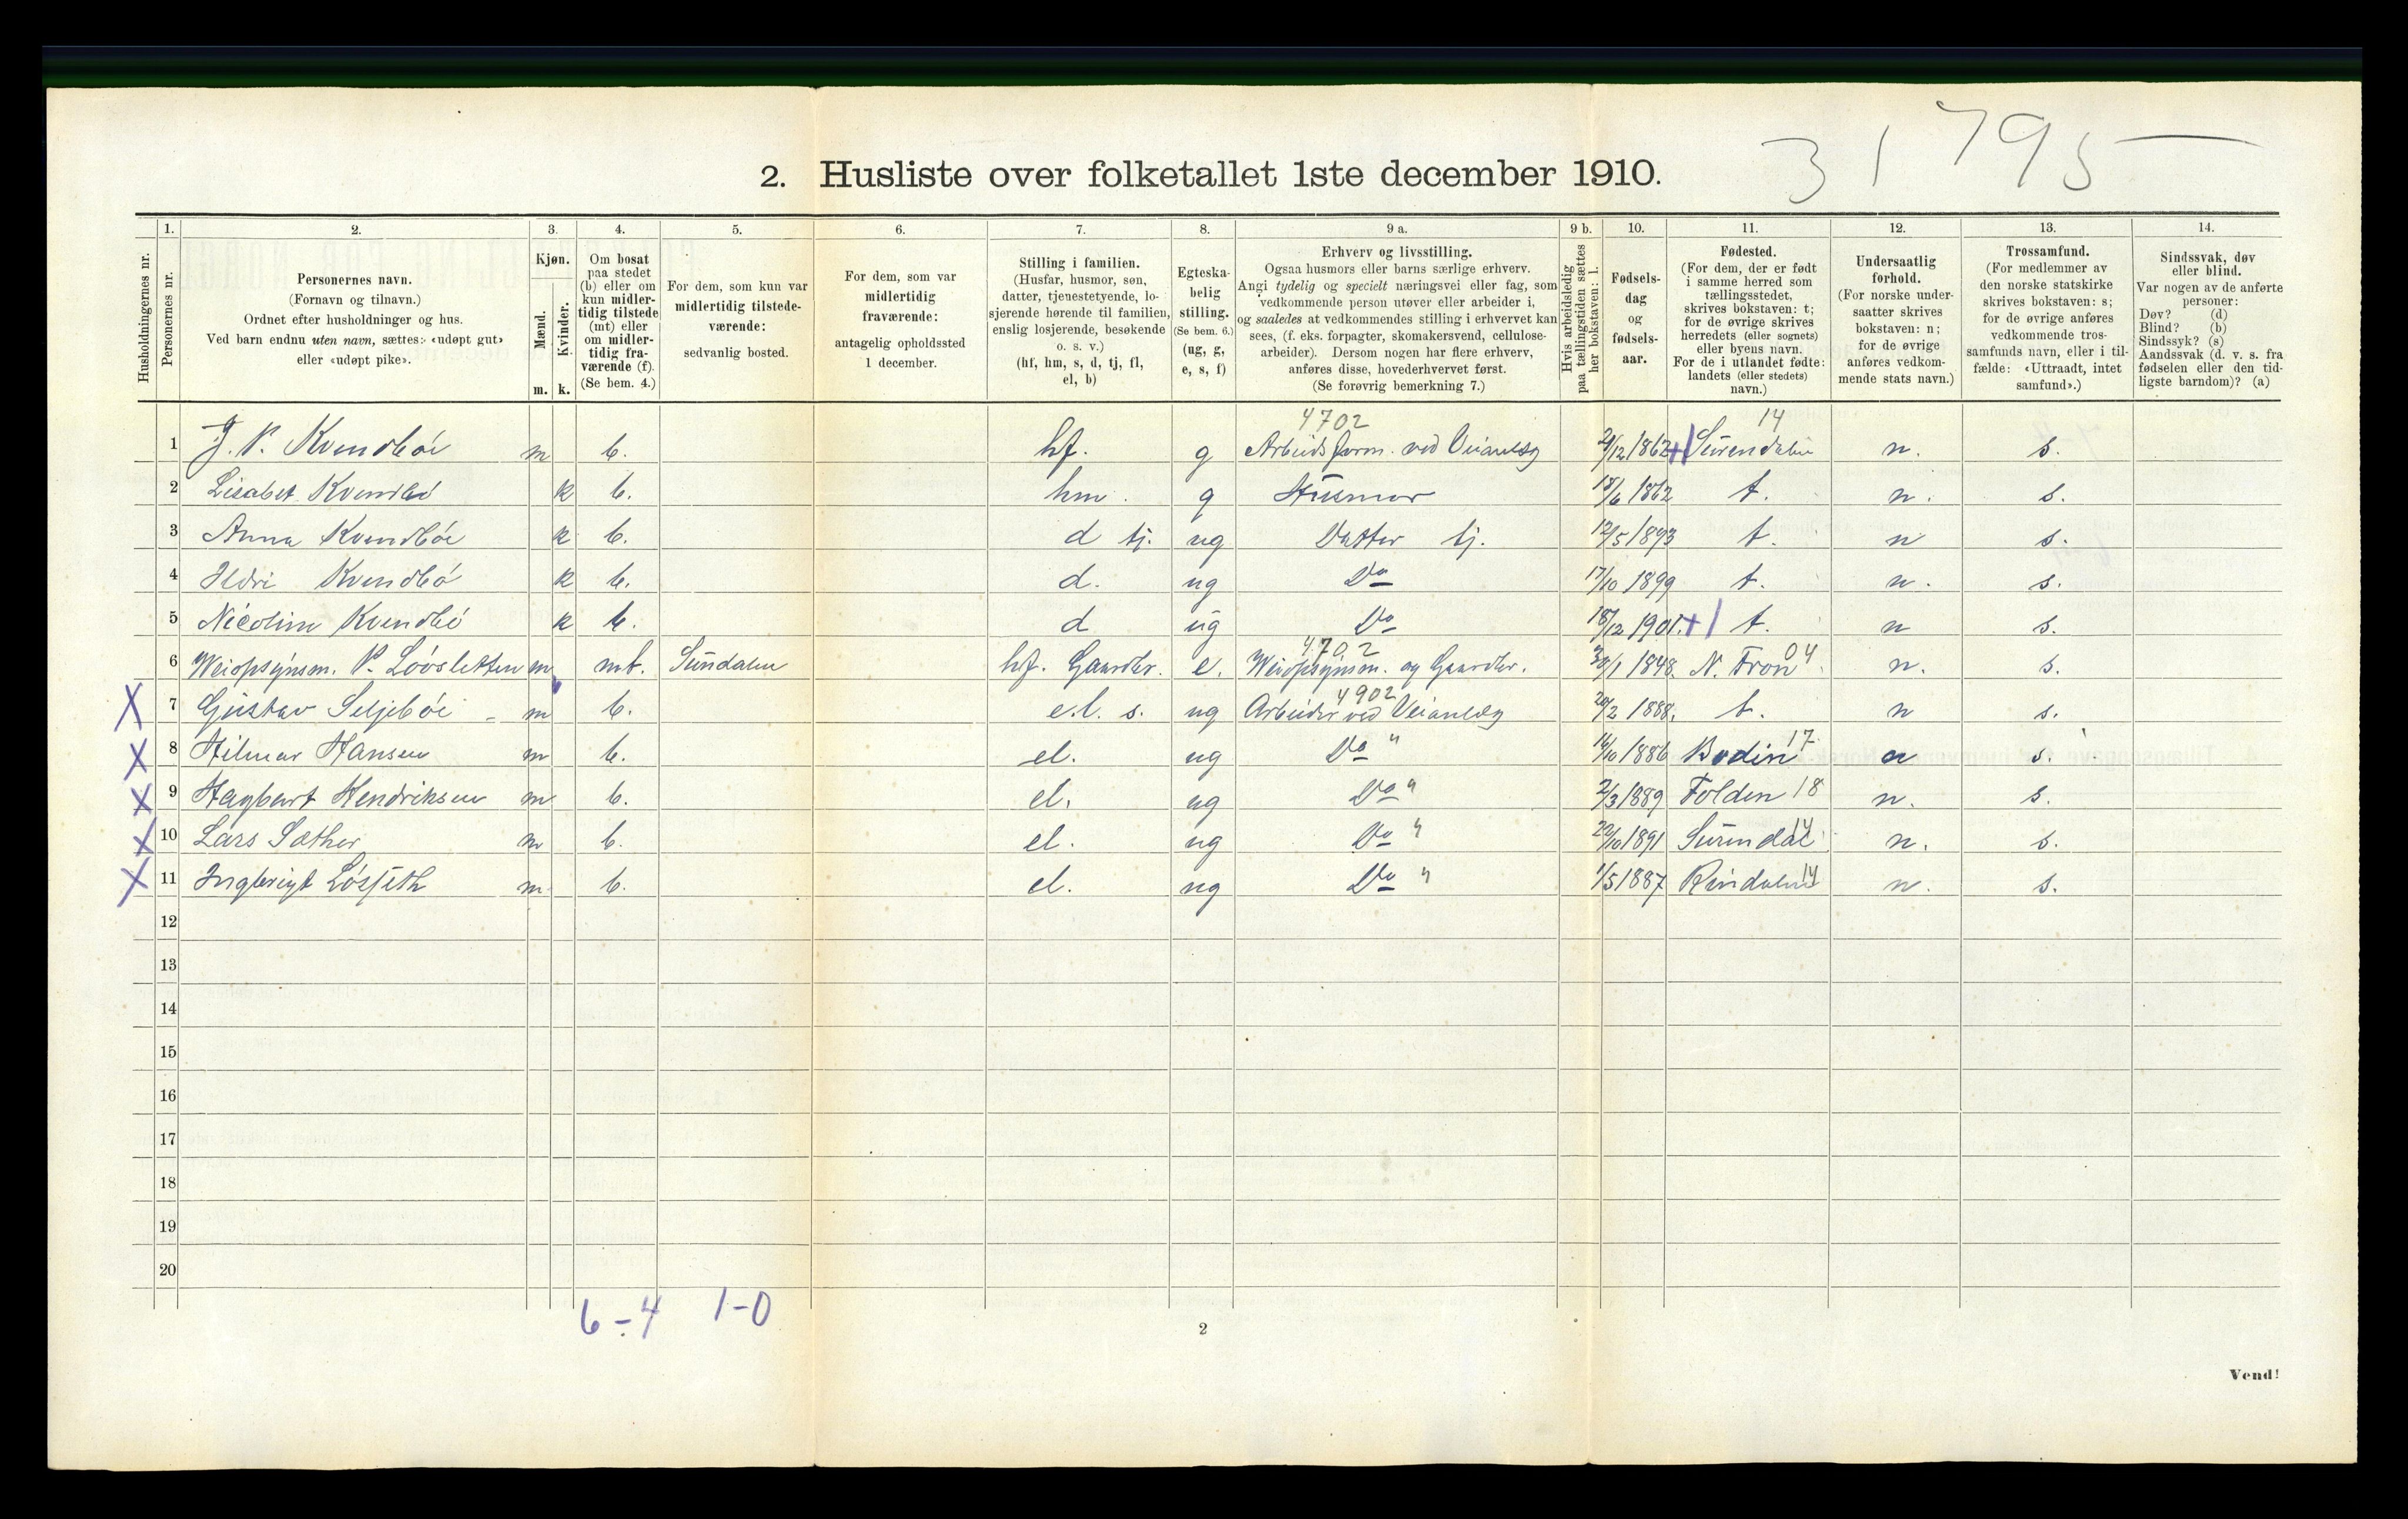 31795
2. Husliste over folketallet 1ste december 1910.
Husholdningernes nr.
1. Personernes nr.
2. Personernes navn.
(Fornavn og tilnavn.)
Ordnet efter husholdninger og hus.
Ved barn endnu uten navn, sættes: «udøpt gut»
eller «udøpt pike».
3. Kjøn.
Mænd. m.
Kvinder. k.
4. Om bosat
paa stedet
(b) eller om
kun midler-
tidig tilstede
(mt) eller
om midler-
tidig fra-
værende (f).
(Se bem. 4.)
5. For dem, som kun var
midlertidig tilstede-
værende:
sedvanlig bosted.
6. For dem, som var
midlertidig
fraværende:
antagelig opholdssted
1 december.
7. Stilling i familien.
(Husfar, husmor, søn,
datter, tjenestetyende, lo-
sjerende hørende til familien,
enslig losjerende, besøkende
o. s. v.)
(hf, hm, s, d, tj, fl,
el, b)
8. Egteska-
belig
stilling.
(Se bem. 6.)
(ug, g,
e, s, f)
9 a. Erhverv og livsstilling.
Ogsaa husmors eller barns særlige erhverv.
Angi tydelig og specielt næringsvei eller fag, som
vedkommende person utøver eller arbeider i,
og saaledes at vedkommendes stilling i erhvervet kan
sees, (f. eks. forpagter, skomakersvend, cellulose-
arbeider). Dersom nogen har flere erhverv,
anføres disse, hovederhvervet først.
(Se forøvrig bemerkning 7.)
9 b. Hvis arbeidsledig
paa tællingstiden sættes
her bokstaven: l.
10. Fødsels-
dag
og
fødsels-
aar.
11. Fødested.
(For dem, der er født
i samme herred som
tællingsstedet,
skrives bokstaven: t;
for de øvrige skrives
herredets (eller sognets)
eller byens navn.
For de i utlandet fødte:
landets (eller stedets)
navn.)
12. Undersaatlig
forhold.
(For norske under-
saatter skrives
bokstaven: n;
for de øvrige
anføres vedkom-
mende stats navn.)
13. Trossamfund.
(For medlemmer av
den norske statskirke
skrives bokstaven: s;
for de øvrige anføres
vedkommende tros-
samfunds navn, eller i til-
fælde: «Uttraadt, intet
samfund».)
14. Sindssvak, døv
eller blind.
Var nogen av de anførte
personer:
Døv? (d)
Blind? (b)
Sindssyk? (s)
Aandssvak (d. v. s. fra
fødselen eller den tid-
ligste barndom)? (a)
4702 14
1 J. P. Kvendbøe m b. hf. g Arbeidsform. ved Veianlæg /12 1862 Surendalen n. s.
2 Lisabet Kvendbø k b. hm. g Husmor 18/6 1862 t. n. s.
3 Anna Kvendbøe k b. d tj. ug Datter tj. 12/5 1893 t. n s.
4 Ildri Kvendbø k b. d. ug Do 17/10 1899 t. n. s.
5 Nicoline Kvendbø k b. d ug Do 18/12 1901. t. n s.
4702 04
6 Weiopsynsm. P. Løøsletten m mt. Sundalen hf. Gaardbr. e. Weiopsynsm. og Gaardbr. 30/1 1848. N. Fron n. s.
4902
7 Gustav Seljebøe m b. e.l. s. ug Arbeider ved Veianlæg 20/2 1888. t. n s.
8 Hilmar Hansen m b. el. ug Do " 14/10 1886 Bodin 17 n s.
9 Hagbart Hendriksen m b. el. ug Do " 2/3 1889 Folden 18 n. s.
10 Lars Sæther m b. el. ug Do " 22/10 1891 Surendal 14 n. s.
11 Ingbrigt Løsseth m b. el. ug Do " 1/5 1887 Rindalen 14 n. s.
12
13
14
15
16
17
18
19
20
6-4 1-0
2
Vend!